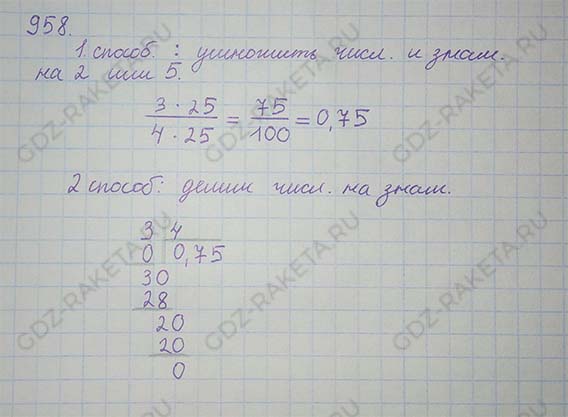 958.
1 способ: умножить числ. и знам.
на 2 или 5.
3 · 25 / 4 · 25 = 75 / 100 = 0,75
2 способ: делим числ. на знам.
3 4
0 0,75
30
28
20
20
0
GDZ-RAKETA.RU
GDZ-RAKETA.RU
GDZ-RAKETA.RU
GDZ-RAKETA.RU
GDZ-RAKETA.RU
GDZ-RAKETA.RU